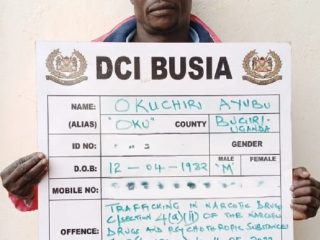 DCI BUSIA
NAME: OKUCHIRI AYUBU
(ALIAS) "OKU" COUNTY BUGIRI-
UGANDA
ID NO: GENDER
D.O.B: 12-04-1982 MALE "M" FEMALE
MOBILE NO:
OFFENCE: TRAFFICKING IN NARCOTIC DRUGS
C/SECTION 4(a)(ii) OF THE NARCOTIC
DRUGS AND PSYCHOTROPIC SUBSTANCES